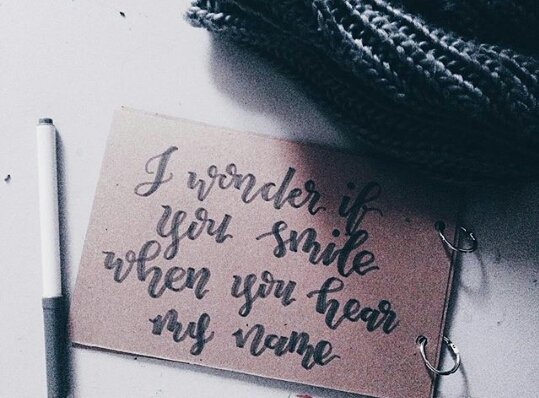 I wonder if
you smile
when you hear
my name